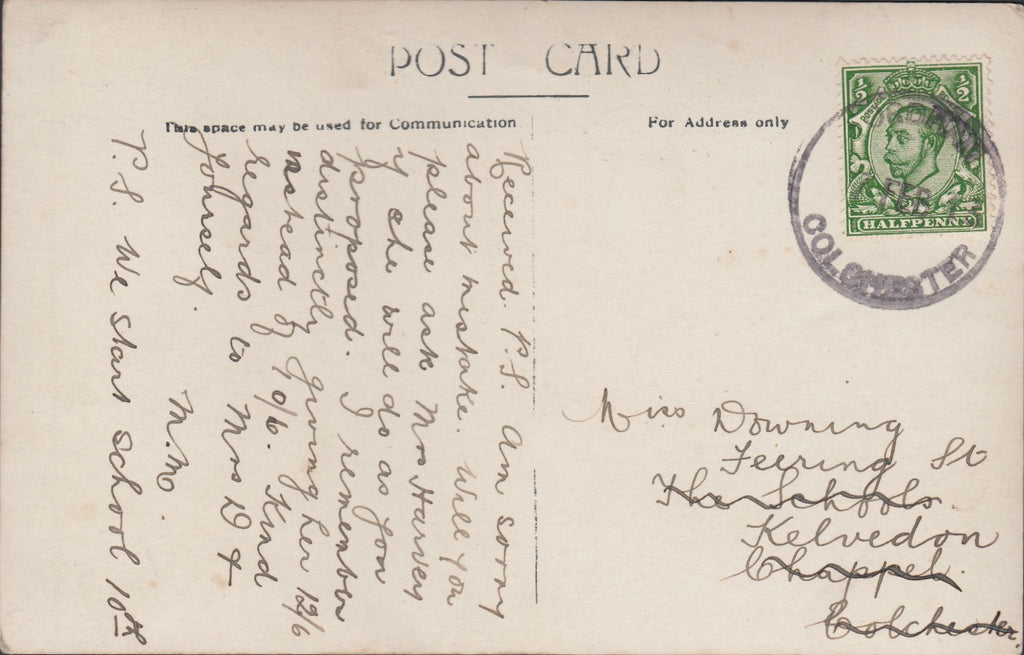 POST CARD
This space may be used for Communication
For Address only
Received P.S. Am sorry
about mistake. Will you
please ask Mrs Harvey
if she will do as you
proposed. I remember
distinctly giving her 12/6
instead of 10/6. Kind
regards to Mrs D &
yourself.
M.M.
P.S. We start school 10th
½ ½
HALFPENNY
FEB
COLCHESTER
Miss Downing
Feering St
The Schools
Kelvedon
Chappel
Colchester.